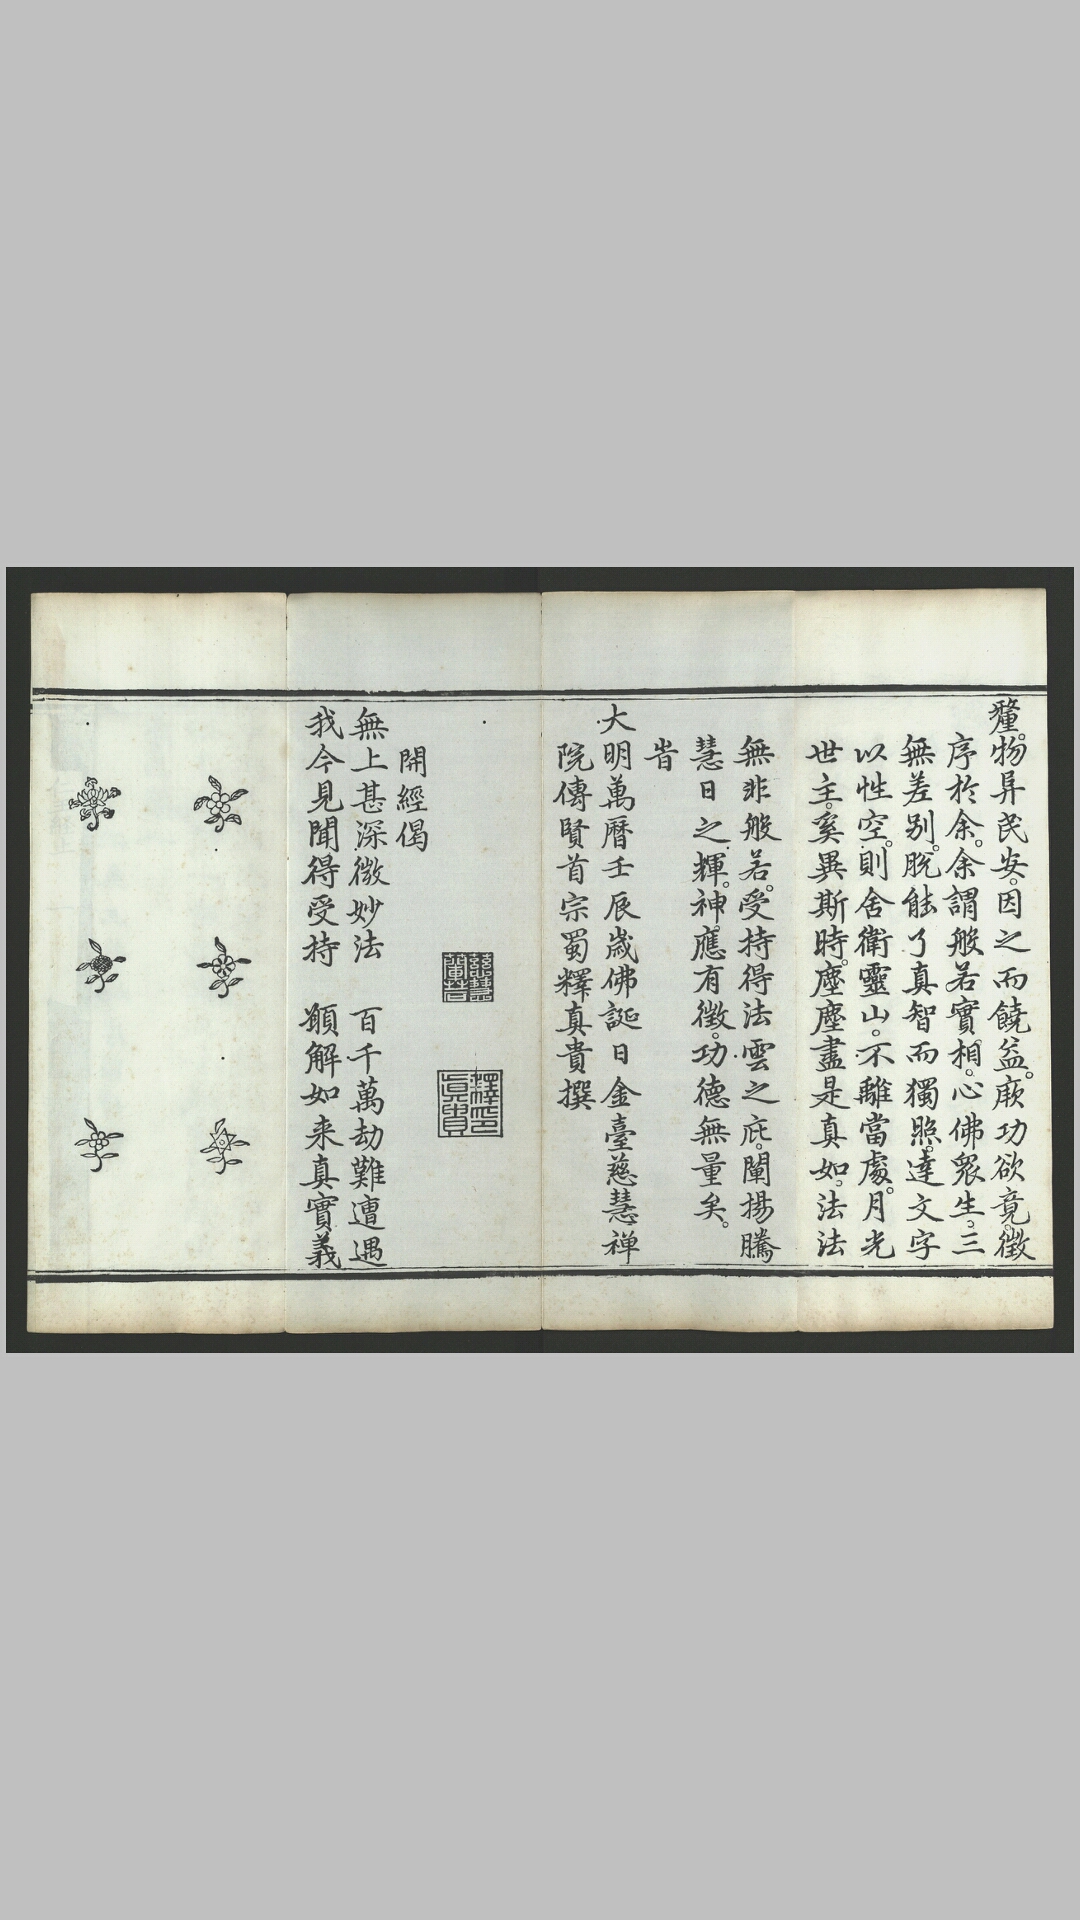 釐。物异民安。因之而饒益。厥功欲竟。徵
序於余。余謂般若實相。心佛眾生。三
無差别。脫能了真智而獨照。達文字
以性空。則舍衛靈山。不離當處。月光
世主。奚異斯時。塵塵盡是真如。法法
無非般若。受持得法雲之庇。闡揚騰
慧日之輝。神應有徵。功德無量矣。
旹
大明萬曆壬辰歲佛誕日金臺慈慧禅
院傳賢首宗蜀釋真貴撰
慈慧蘭若
釋氏真貴
開經偈
無上甚深微妙法　百千萬劫難遭遇
我今見聞得受持　願解如来真實義